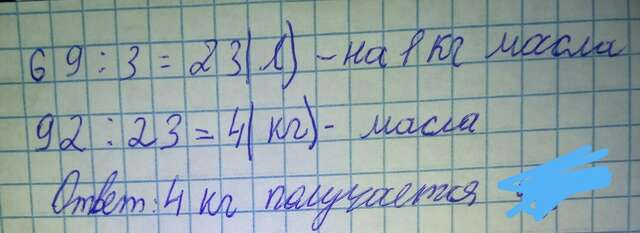 69 : 3 = 23 (л) – на 1 кг масла
92 : 23 = 4 (кг) – масла
Ответ: 4 кг получается